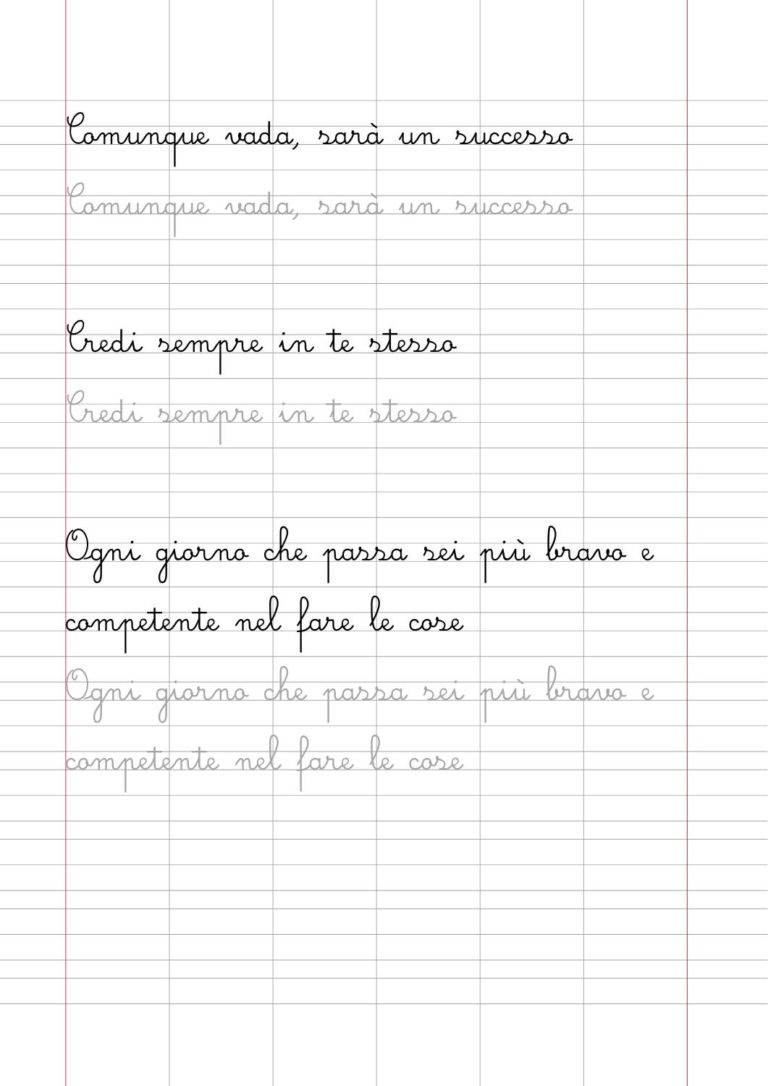 Comunque vada, sarà un successo
Comunque vada, sarà un successo
Credi sempre in te stesso
Credi sempre in te stesso
Ogni giorno che passa sei più bravo e
competente nel fare le cose
Ogni giorno che passa sei più bravo e
competente nel fare le cose